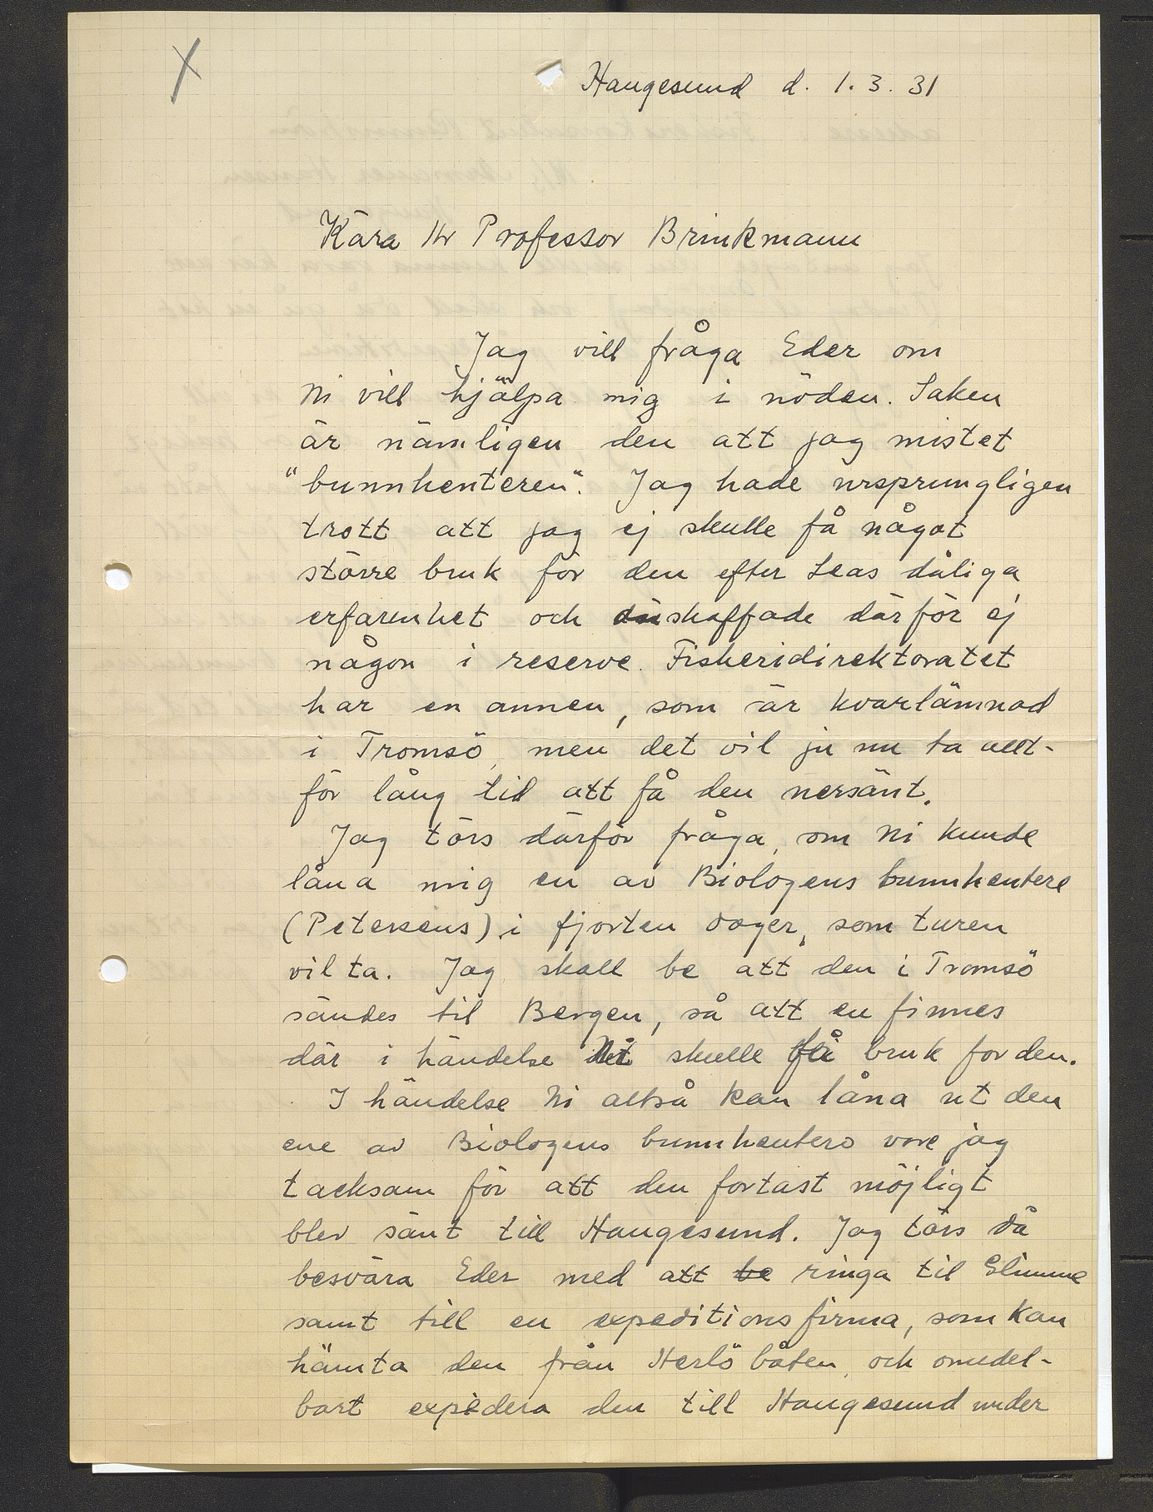 Haugesund d. 1.3.31
Kära Hr Professor Brinkmann
Jag vill fråga Eder om
Ni vill hjälpa mig i nöden. Saken
är nämligen den att jag mistet
"bunnhenteren". Jag hade ursprungligen
trott att jag ej skulle få något
större bruk för den efter Leas dåliga
erfarenhet och anskaffade därför ej
någon i reserve. Fisheridirektoratet
har en annen, som är kvarlämnad
i Tromsö, men det vil ju nu ta allt-
för lång tid att få den nersänt.
Jag törs därför fråga, om Ni kunde
låna mig en av Biologens bunnhentere
(Petersens) i fjorten dager, som turen
vil ta. Jag skall be att den i Tromsö
sändes til Bergen, så att en finnes
där i händelse det skulle bli bruk for den.
I händelse Ni altså kan låna ut den
ene av Biologens bunnhentero vore jag
tacksam för att den fortast möjligt
blev sänt till Haugesund. Jag törs då
besvära Eder med att be ringa til Glimme
samt till en expeditionsfirma, som kan
hämta den från Herlö båten, och omedel-
bart expidera den till Haugesund under